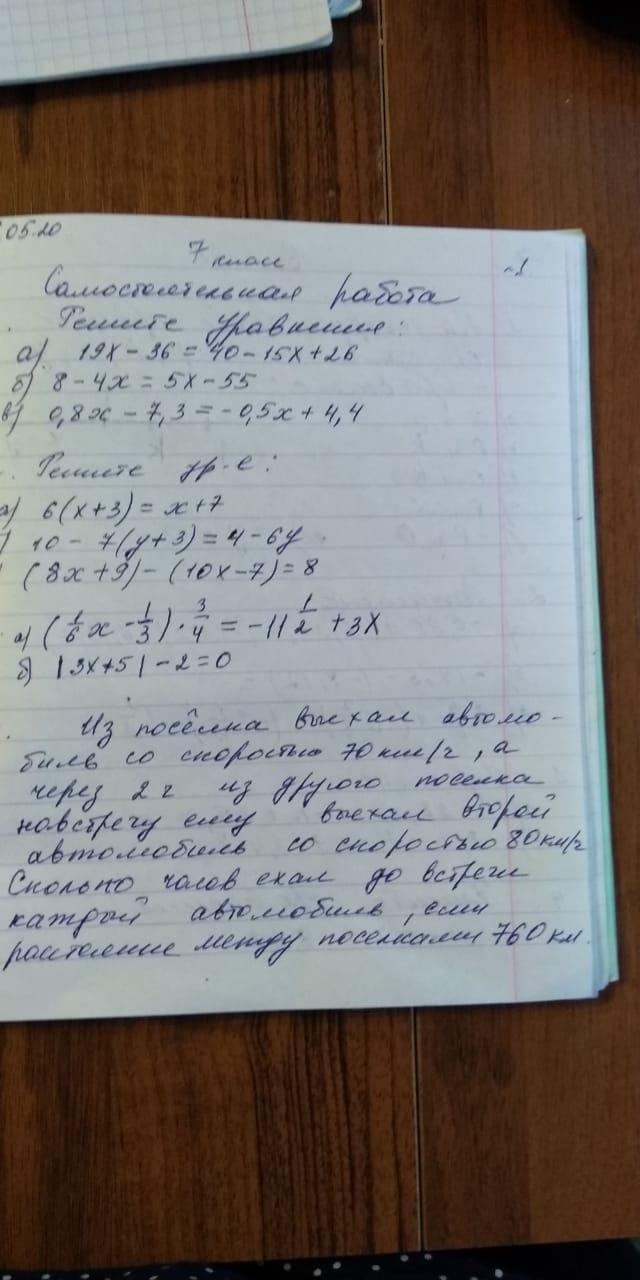 05.20
7 класс
-1
Самостоятельная работа
Решите уравнения:
а) 19х - 36 = 40 - 15х + 26
б) 8 - 4х = 5х - 55
в) 0,8х - 7,3 = -0,5х + 4,4
Решите ур-е:
а) 6(х+3) = х+7
) 10 - 7(у+3) = 4 - 6у
(8х+9) - (10х-7) = 8
а) (1/6 х - 1/3) · 3/4 = -11 1/2 + 3х
б) |3х+5| - 2 = 0
Из посёлка выехал автомо-
биль со скоростью 70 км/ч, а
через 2 ч из другого поселка
навстречу ему выехал второй
автомобиль со скоростью 80 км/ч
Сколько часов ехал до встречи
каждый автомобиль, если
растояние между поселками 760 км.